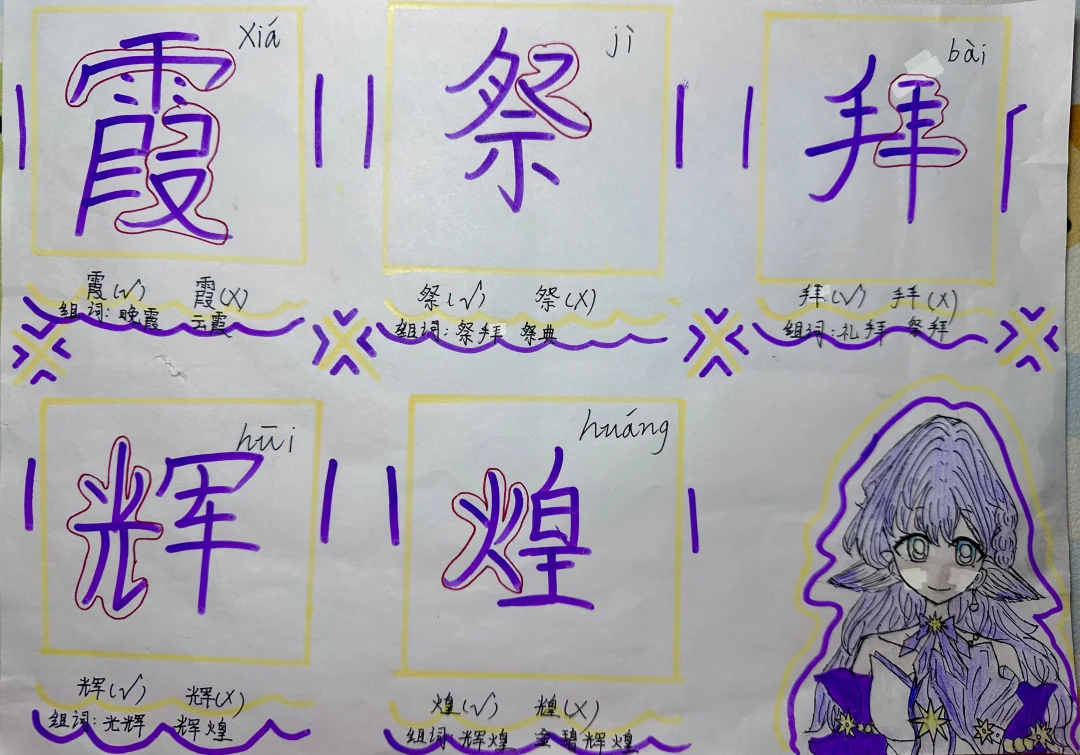 霞 xiá
祭 jì
拜 bài
霞(√) 霞(X)
组词: 晚霞 云霞
祭(√) 祭(X)
组词: 祭拜 祭典
拜(√) 拜(X)
组词: 礼拜 祭拜
辉 huī
煌 huáng
辉(√) 辉(X)
组词: 光辉 辉煌
煌(√) 煌(X)
组词: 辉煌 金碧辉煌